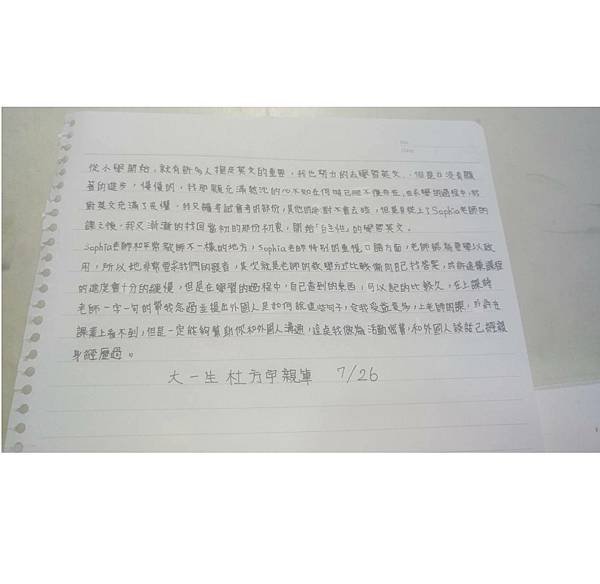 從小學開始，就有許多人提及英文的重要，我也努力的去學習英文，但是卻沒有顯
著的進步，慢慢的，我那顆充滿熱忱的心不知在何時已經不復存在，在學習的過程中，
對英文充滿了畏懼，我只讀考試會考的部份，其他的絕對不會去碰，但是自從上了Sophia老師的
課之後，我又漸漸的找回當初的那份初衷，開始「自主性」的學習英文。
Sophia老師和平常教師不一樣的地方，Sophia老師特別的重視口語方面，老師認為要學以致
用，所以她非常要求我們的發音，其次就是老師的教學方式比較偏向自己找答案，或許這樣課程
的進度會十分的緩慢，但是在學習的過程中，自己查到的東西，可以記的比較久，在上課時
老師一字一句的帶我念過並提出外國人是如何說這些句子，令我受益良多，上老師的課，或許在
課業上看不到，但是一定能夠幫助你和外國人溝通，這点我做為活動證實，和外國人談話已經親
身經歷過。
大一生 杜方宇親筆 7/26